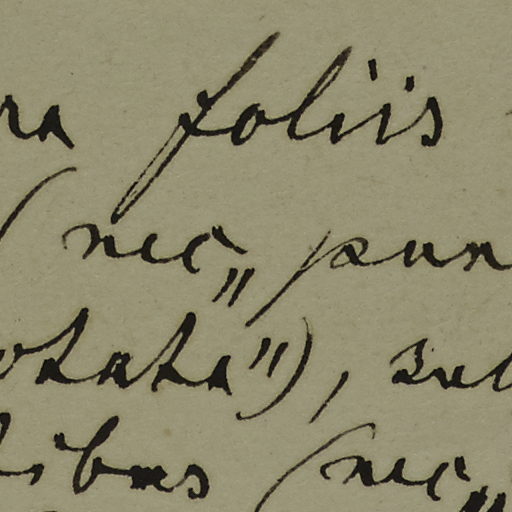 ra foliis
(nec „pun
otata"), sub
tibus (nec „